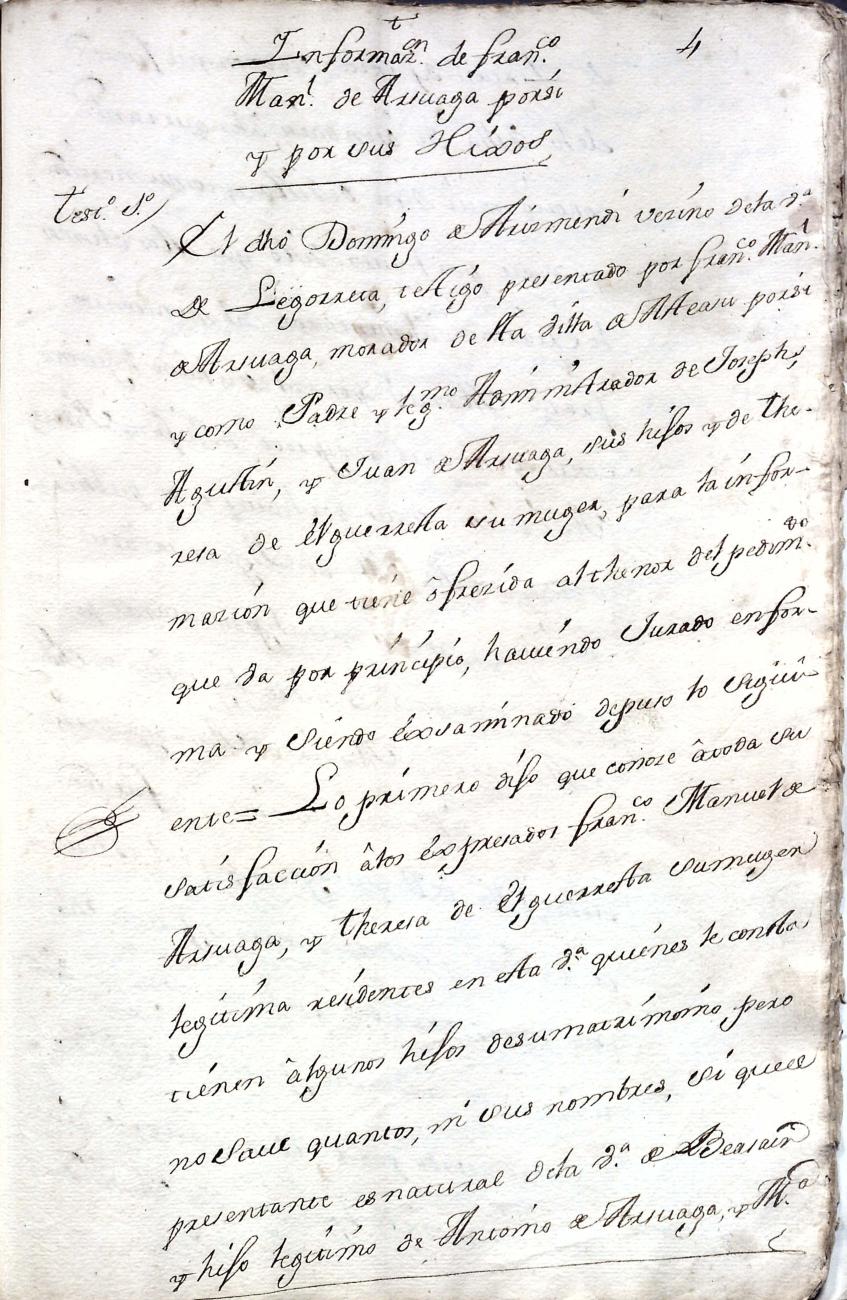 t
Informaz.on de fran.co
4
Man.l de Arsuaga por si
y por sus Hixos
Testi.o 1.o
El dho Domingo de Arismendi vezino de la v.a
de Legorreta, testigo presentado por fran.co Man.l
de Arsuaga, morador de esta villa de Ateaun por si
y como Padre y leg.mo Administrador de Joseph,
Agustin, y Juan de Arsuaga, sus hijos y de The-
resa de Elguerresta su muger, para la infor-
mazion que tiene ôfrezida al thenor del pedim.to
que da por prinzipio, haviendo Jurado en for-
ma y siendo êxsaminado depuso lo sigui-
ente= Lo primero dijo que conoze âtoda su
satisfaccion âlos êxpresados fran.co Manuel de
Arsuaga, y Theresa de Elguerresta su muger
legitima residentes en esta v.a quienes le consta
tienen âlgunos hijos de su matrimonio pero
no save quantos, ni sus nombres, si que el
presentante es natural de la v.a de Beasain
y hijo legitimo de Antonio de Arsuaga, y M.a